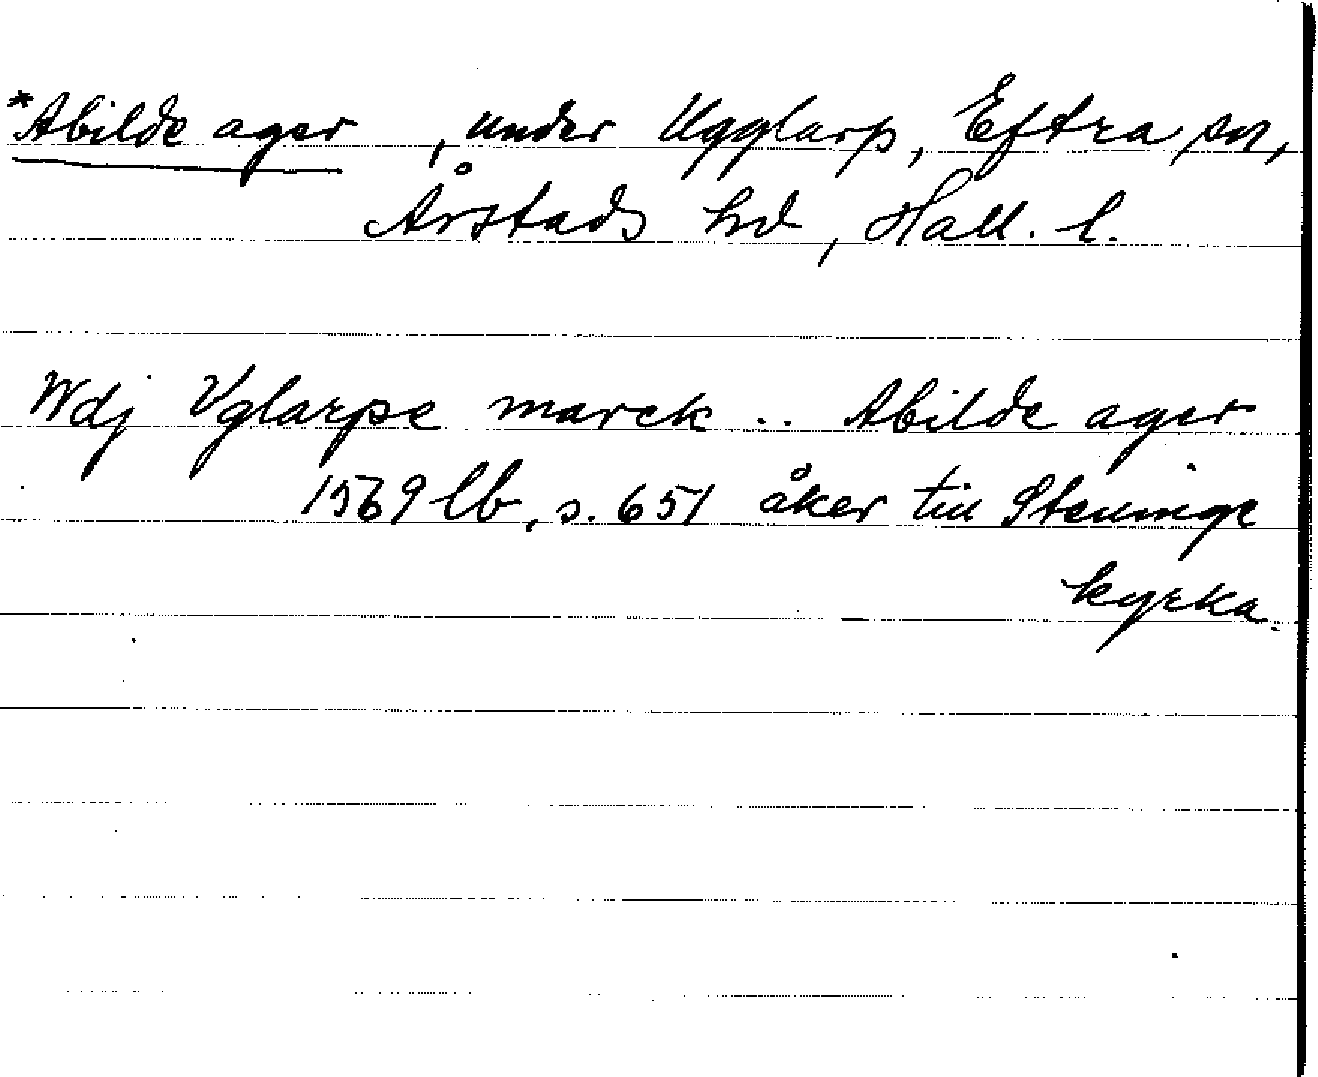 *Abilde ager, under Ugglarp, Eftra sn,
Årstads hd, Hall. l.
Wdj Vglarpe marck .. Abilde ager
1569 lb, s. 651 åker till Steninge
kyrka.